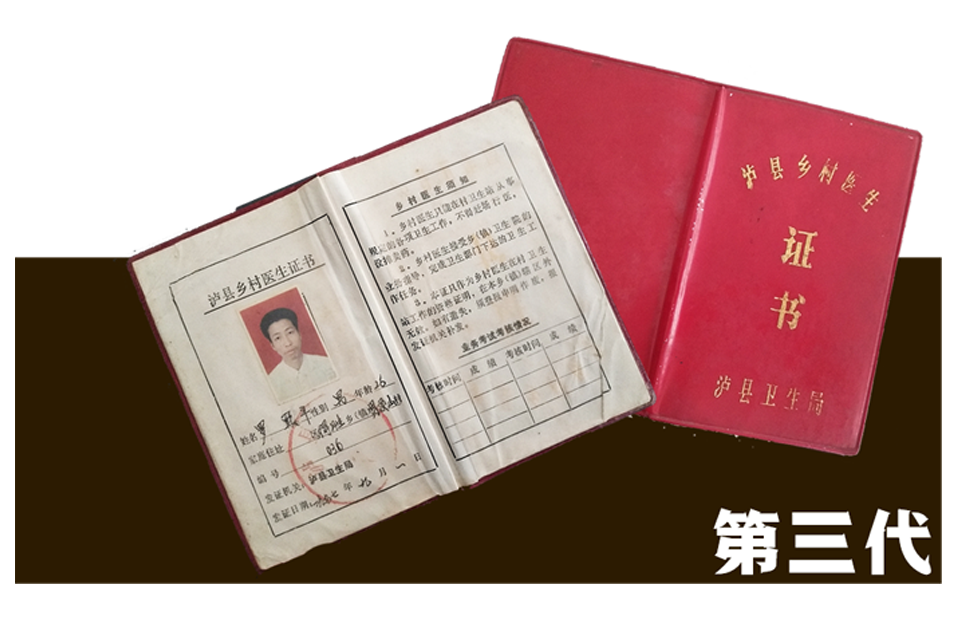 泸县乡村医生证书
姓名 罗 性别 男 年龄 26
家庭住址 乡(镇)
编号 036
发证机关: 泸县卫生局
发证日期: 年 九 月 一 日
乡村医生须知
1、乡村医生只能在村卫生站从事
规定的各项卫生工作,不得赶场行医,
设摊卖药。
2、乡村医生接受乡(镇)卫生院的
业务指导,完成卫生部门下达的卫生工
作任务。
3、本证只作为乡村医生在村卫生
站工作的资格证明,在本乡(镇)辖区外
无效。如有遗失,须登报申明作废,报
发证机关补发。
业务考试考核情况
考核时间 成绩 考核时间 成绩
泸县乡村医生
证
书
泸县卫生局
第三代